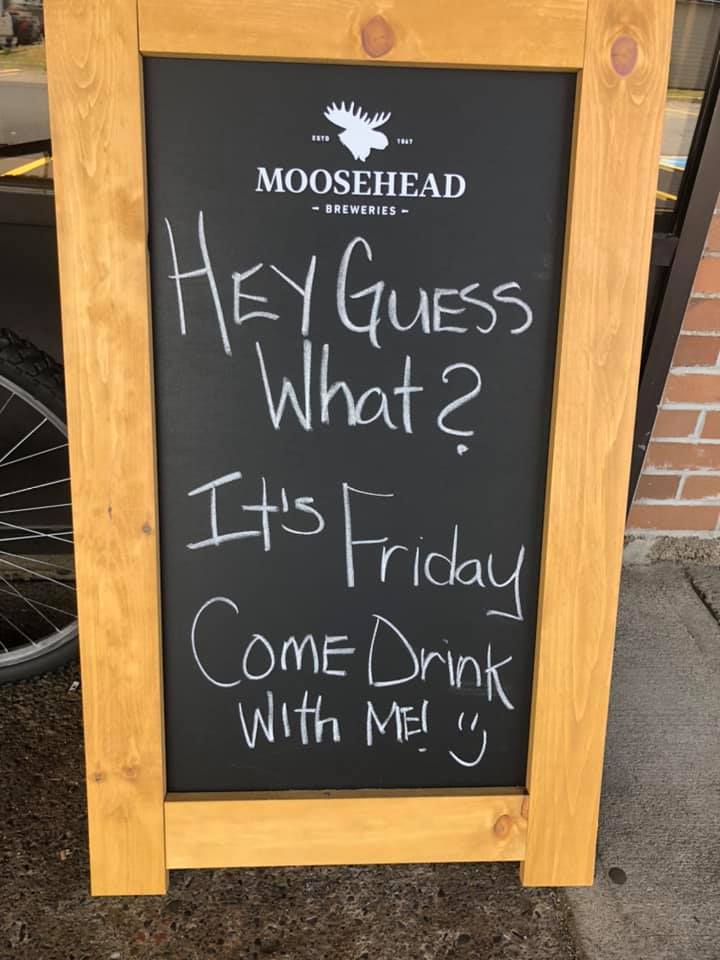 ESTD 1867
MOOSEHEAD
- BREWERIES -
HEY GUESS
What?
It's Friday
COME Drink
With ME! :)